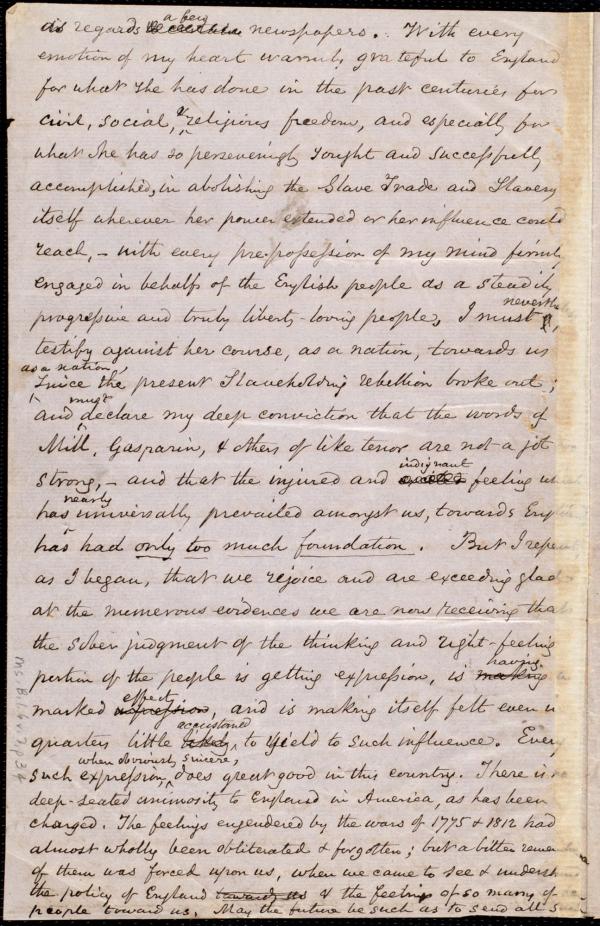 as regards a few newspapers. With every
emotion of my heart warmly grateful to England
for what she has done in the past centuries for
civil, social, & religious freedom, and especially for
what she has so perseveringly sought and successfully
accomplished, in abolishing the Slave Trade and Slavery
itself wherever her power extended or her influence could
reach, – with every prepossession of my mind firmly
engaged in behalf of the English people as a steadily
progressive and truly liberty-loving people, I must neverthe
testify against her course, as a nation, towards us
as a nation, since the present Slaveholding rebellion broke out;
and must declare my deep conviction that the words of
Mill, Gasparin, & others of like tenor are not a jot
strong, – and that the injured and indignant feeling wh
has nearly universally prevailed amongst us, towards Eng
has had only too much foundation. But I repeat,
as I began, that we rejoice and are exceeding glad
at the numerous evidences we are now receiving that
the sober judgment of the thinking and right-feeling
portion of the people is getting expression, is having
marked effect, and is making itself felt even in
quarters little accustomed to yield to such influence. Every
such expression, when obviously sincere, does great good in this country. There is
deep-seated animosity to England in America, as has been
charged. The feelings engendered by the wars of 1775 & 1812 had
almost wholly been obliterated & forgotten; but a bitter remem
of them was forced upon us, when we came to see & underst
the policy of England & the feeling of so many of
people toward us. May the future be such as to send all
Ms.B.1.6 v.7, p.34